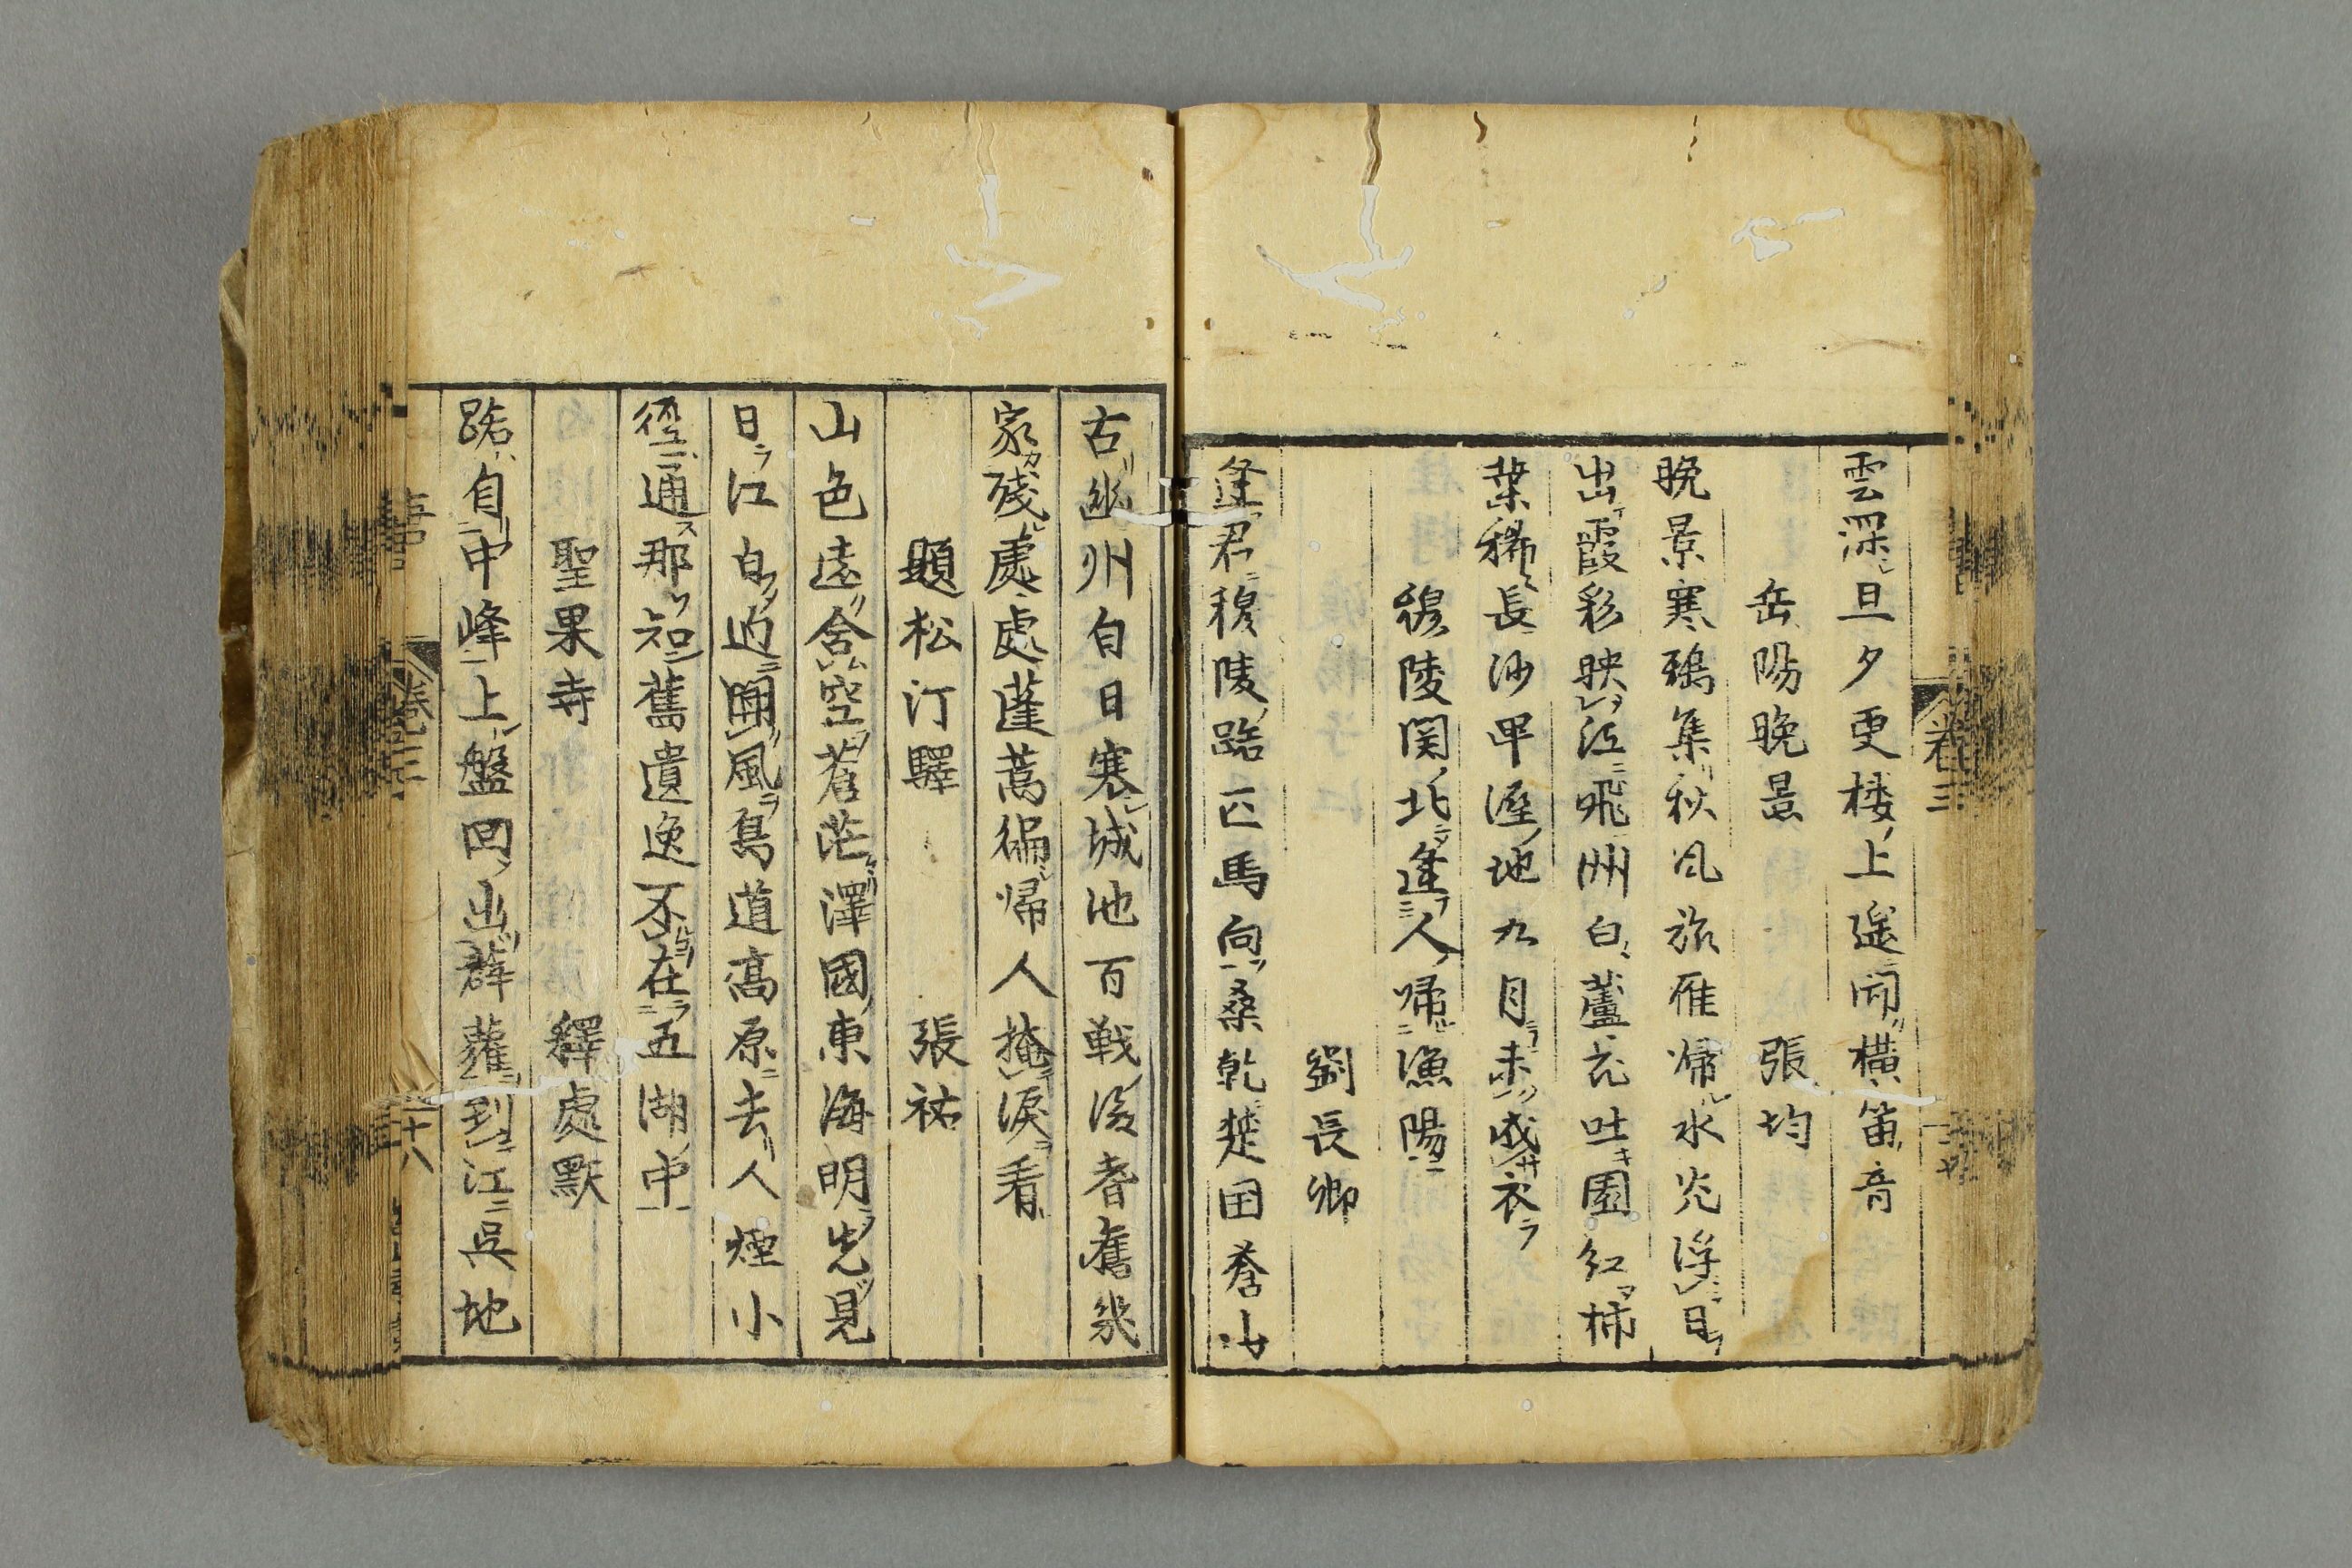 雲深旦夕更楼上遥聞横笛音
岳陽晩景
張均
晩景寒鴉集秋風旅雁帰水光浮日
出霞彩映江飛洲白蘆花吐園紅柿
葉稀長沙卑湿地九月未成衣
穆陵関北逢人帰漁陽
劉長卿
逢君穆陵路匹馬向桑乾楚国蒼山
古幽州白日寒城池百戦後耆舊幾
家残處處蓬蒿徧帰人掩涙看
題松汀驛
張祐
山色遠含空蒼茫澤國東海明先見
日江白迥聞風鳥道高原去人煙小
徑通那知舊遺逸不在五湖中
聖果寺
釋處默
路自中峰上盤回出薜蘿到江吳地
卷三